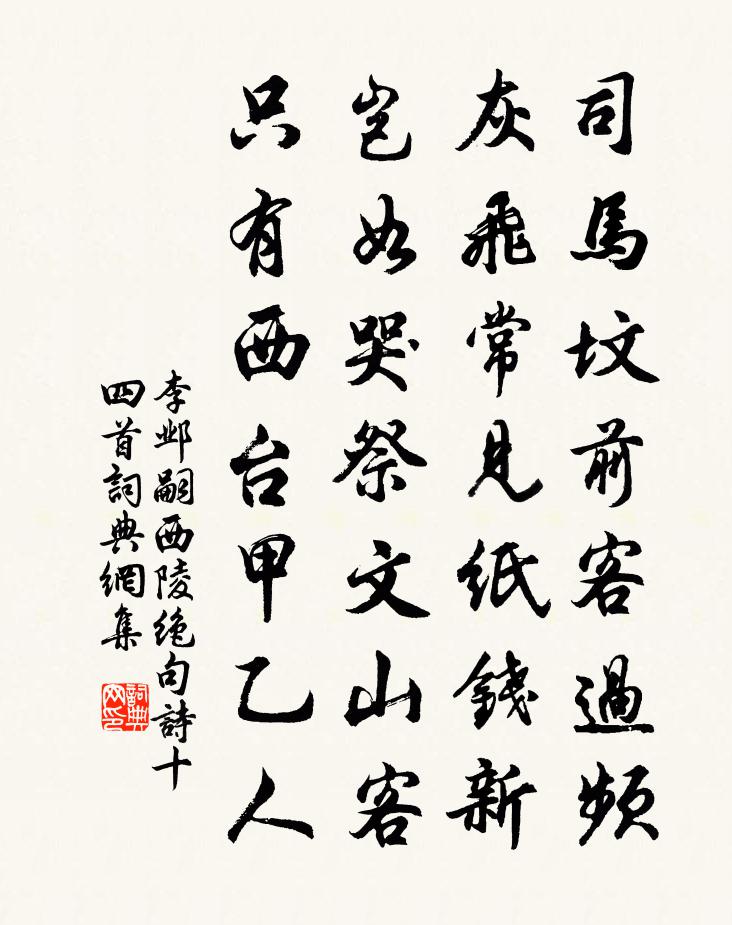 司馬坟前客過頻
灰飛常見紙錢新
豈如哭祭文山客
只有西台甲乙人
李邺嗣西陵绝句詩十
四首詞典網集
詞典
网印